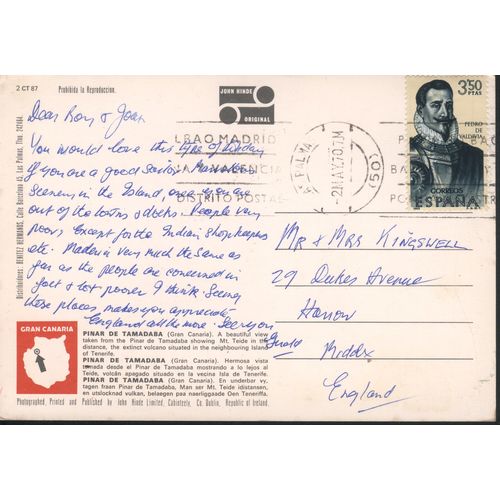 2 CT 87
Prohibida la Reproduccion.
JOHN HINDE
ORIGINAL
3'50
PTAS
PEDRO
DE
VALDIVIA
CORREOS
ESPAÑA
BAO MADRID
VALENCIA
DISTRITO POSTAL
PALMA
2 MAY.70
(50)
Distribuidores: BENITEZ HERMANOS, Calle Barcelona Las Palmas, Tfno. 242604.
Dear Roy & Joan
You would love this type of holiday
If you are a good sailor. Marvellous
Scenery in the Island, once you are
out of the towns & docks. People very
poor, except for the Indian shopkeepers
etc. Madeira very much the same as
far as the people are concerned in
fact a lot poorer I think. Seeing
these places, makes you appreciate
England all the more. See you
Gerald
MR & MRS KINGSWELL
29 Dukes Avenue
Harrow
Middx
England
GRAN CANARIA
PINAR DE TAMADABA (Gran Canaria). A beautiful view
taken from the Pinar de Tamadaba showing Mt. Teide in the
distance, the extinct volcano situated in the neighbouring Island
of Tenerife.
PINAR DE TAMADABA (Gran Canaria). Hermosa vista
tomada desde el Pinar de Tamadaba mostrando a lo lejos al
Teide, volcán apagado situado en la vecina Isla de Tenerife.
PINAR DE TAMADABA (Gran Canaria). En underbar vy,
tagen fraan Pinar de Tamadaba. Man ser Mt. Teide idistansen,
en utslocknad vulkan, belaegen paa naerliggaade Oen Teneriffa.
Photographed, Printed and Published by John Hinde Limited, Cabinteely, Co. Dublin, Republic of Ireland.